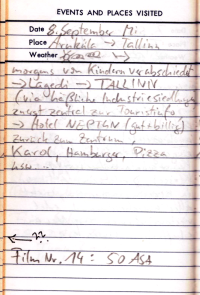 EVENTS AND PLACES VISITED
Date 8. September Mi
Place Aruküla → Tallinn
Weather
morgens von Kindern verabschiedet
→ Lagedi → TALLINN
(via häßliche Industriesiedlungen
zuerst zentral zur Touristinfo
→ Hotel NEPTUN (gut+billig)
zurück zum Zentrum,
Karol, Hamburger, Pizza
usw....
← ??
Film Nr. 14: 50 ASA